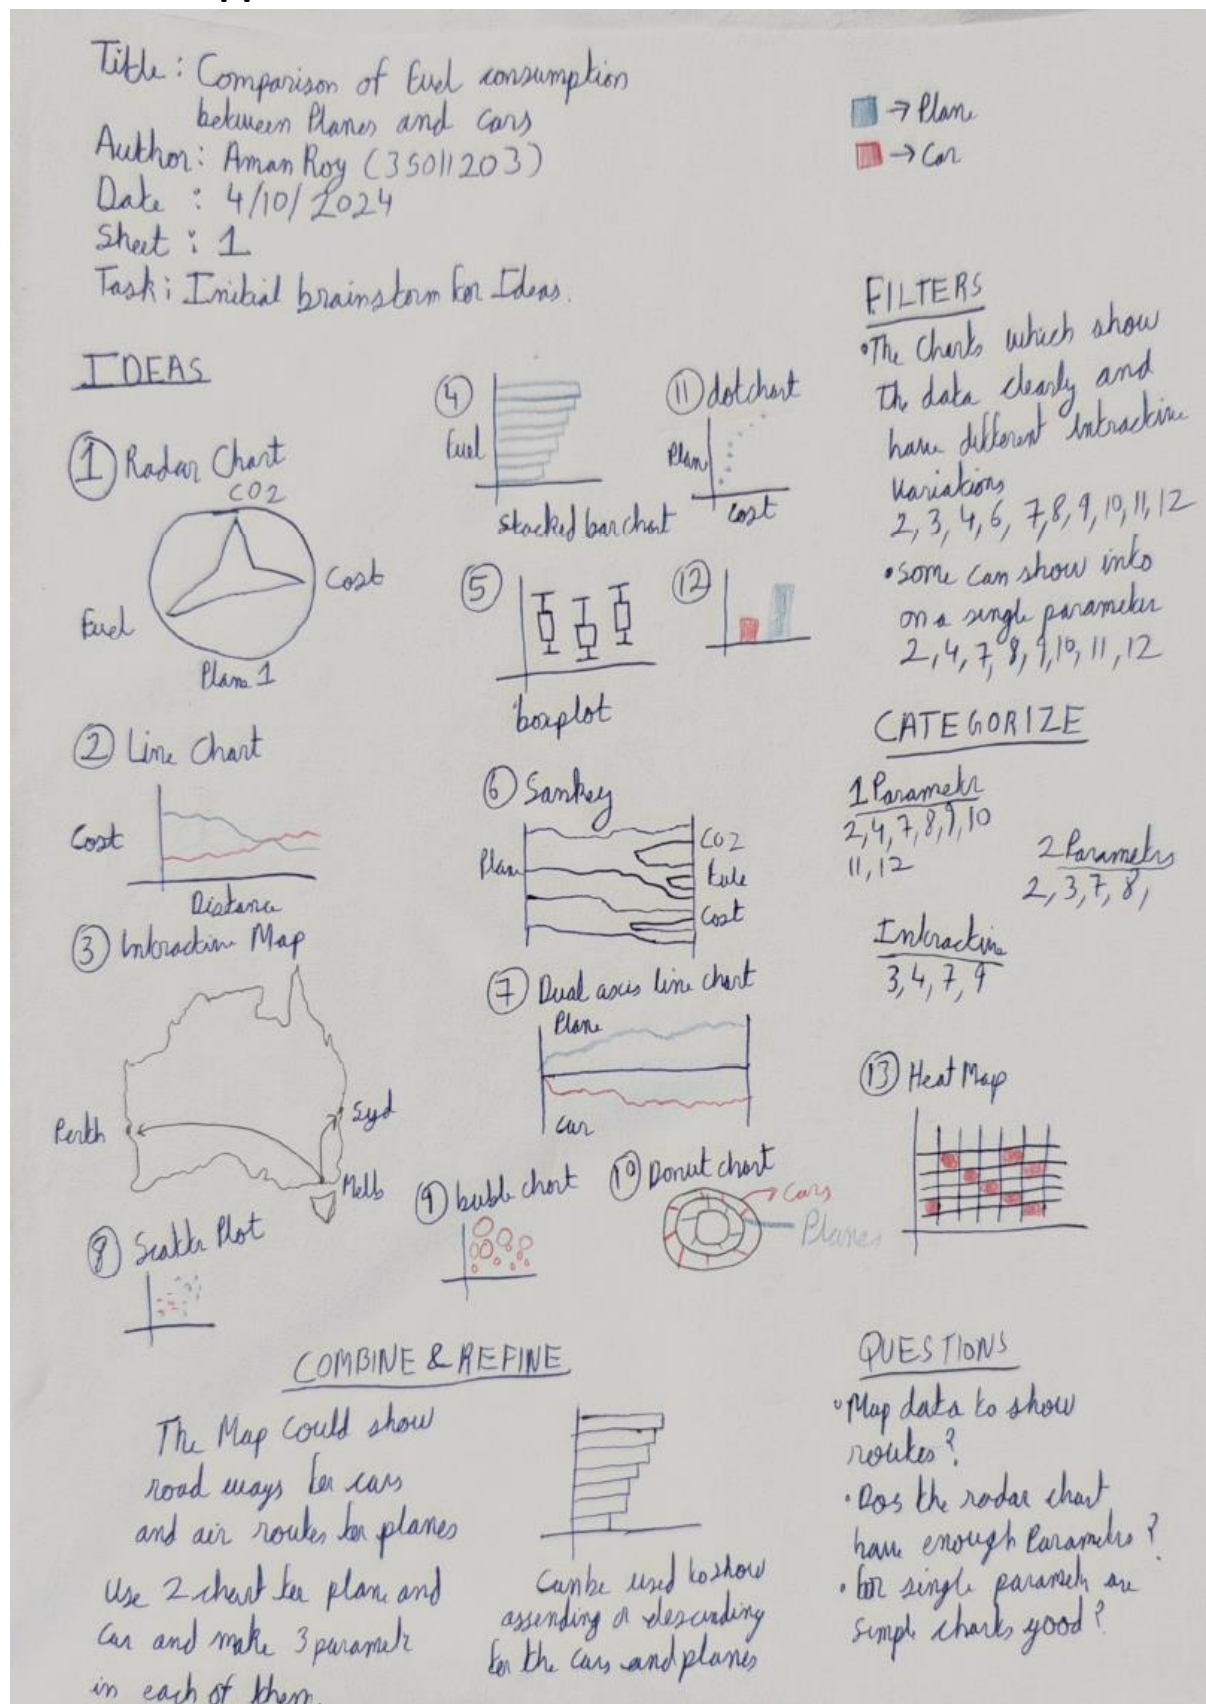 Title: Comparison of Fuel consumption
between Planes and cars
Author: Aman Roy (35011203)
Date : 4/10/2024
Sheet : 1
Task: Initial brainstorm for Ideas.
→ Plane
→ Car
IDEAS
1 Radar Chart
CO2
Cost
Fuel
Plane 1
2 Line Chart
Cost
Distance
3 Intractive Map
Perth
Syd
Melb
8 Scatter Plot
4
Fuel
Stacked bar chart
5
boxplot
6 Sankey
Plane
CO2
Fule
Cost
7 Dual axis line chart
Plane
Car
9 buble chart
10 Donut chart
Cars
Planes
11 dotchart
Plane
Cost
12
FILTERS
• The Charts which show
The data clearly and
have different Intractive
Variations
2, 3, 4, 6, 7, 8, 9, 10, 11, 12
• Some can show into
on a single parameter
2, 4, 7, 8, 9, 10, 11, 12
CATEGORIZE
1 Parameter
2, 4, 7, 8, 9, 10
11, 12
2 Parameters
2, 3, 7, 8,
Intractive
3, 4, 7, 9
13 Heat Map
COMBINE & REFINE
The Map Could show
road ways for cars
and air routes for planes
Use 2 chart for plane and
Car and make 3 parameter
in each of them.
Can be used to show
assending or descending
for the cars and planes
QUESTIONS
• Map data to show
routes?
• Dos the radar chart
have enough Parameters?
• For single parameter are
simple charts good?